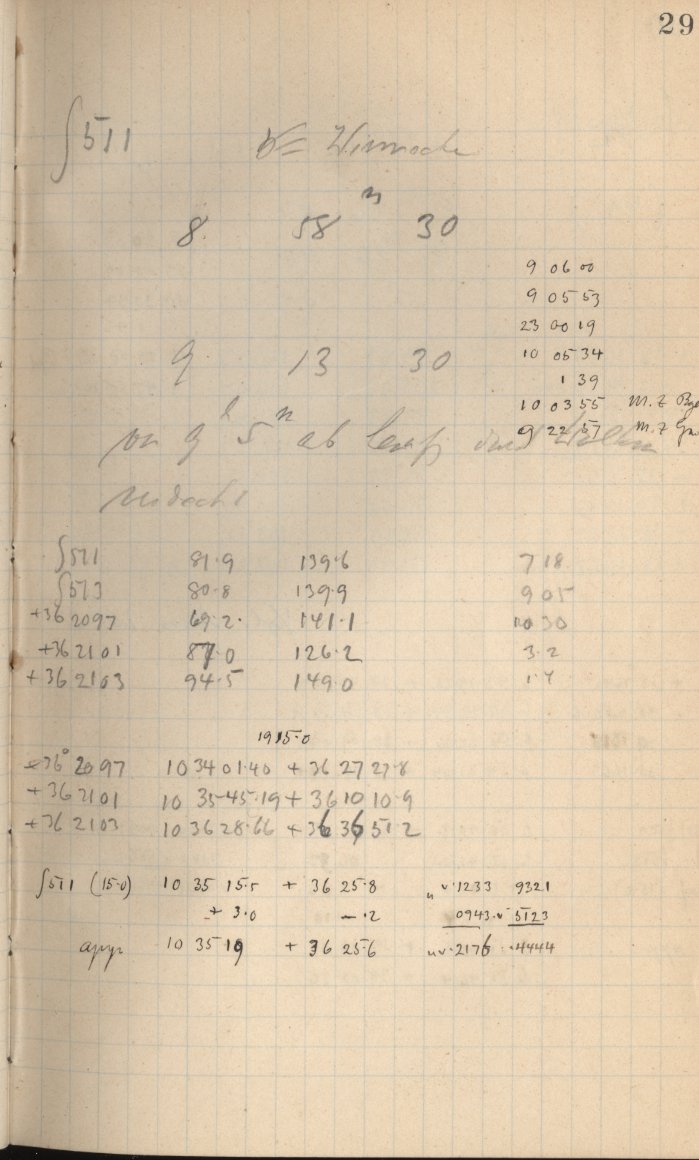 29
∫511
8 58 m 30
9 06 00
9 05 53
23 00 19
9 13 30
10 05 34
1 39
10 03 55 M.Z
9 22 57 M.Z
9 h 5 m ab
∫511 81.9 139.6 7 18
∫513 80.8 139.9 9 05
+36 2097 69.2 141.1 10 30
+36 2101 87.0 126.2 3.2
+36 2103 94.5 149.0 1.7
1915.0
+36° 2097 10 34 01.40 + 36 27 27.8
+36 2101 10 35 45.19 + 36 10 10.9
+36 2103 10 36 28.66 + 36 36 51.2
∫511 (15.0) 10 35 15.5 + 36 25.8 .1233 9321
+ 3.0 - .2 0943 5123
10 35 19 + 36 25.6 .2176 .4444